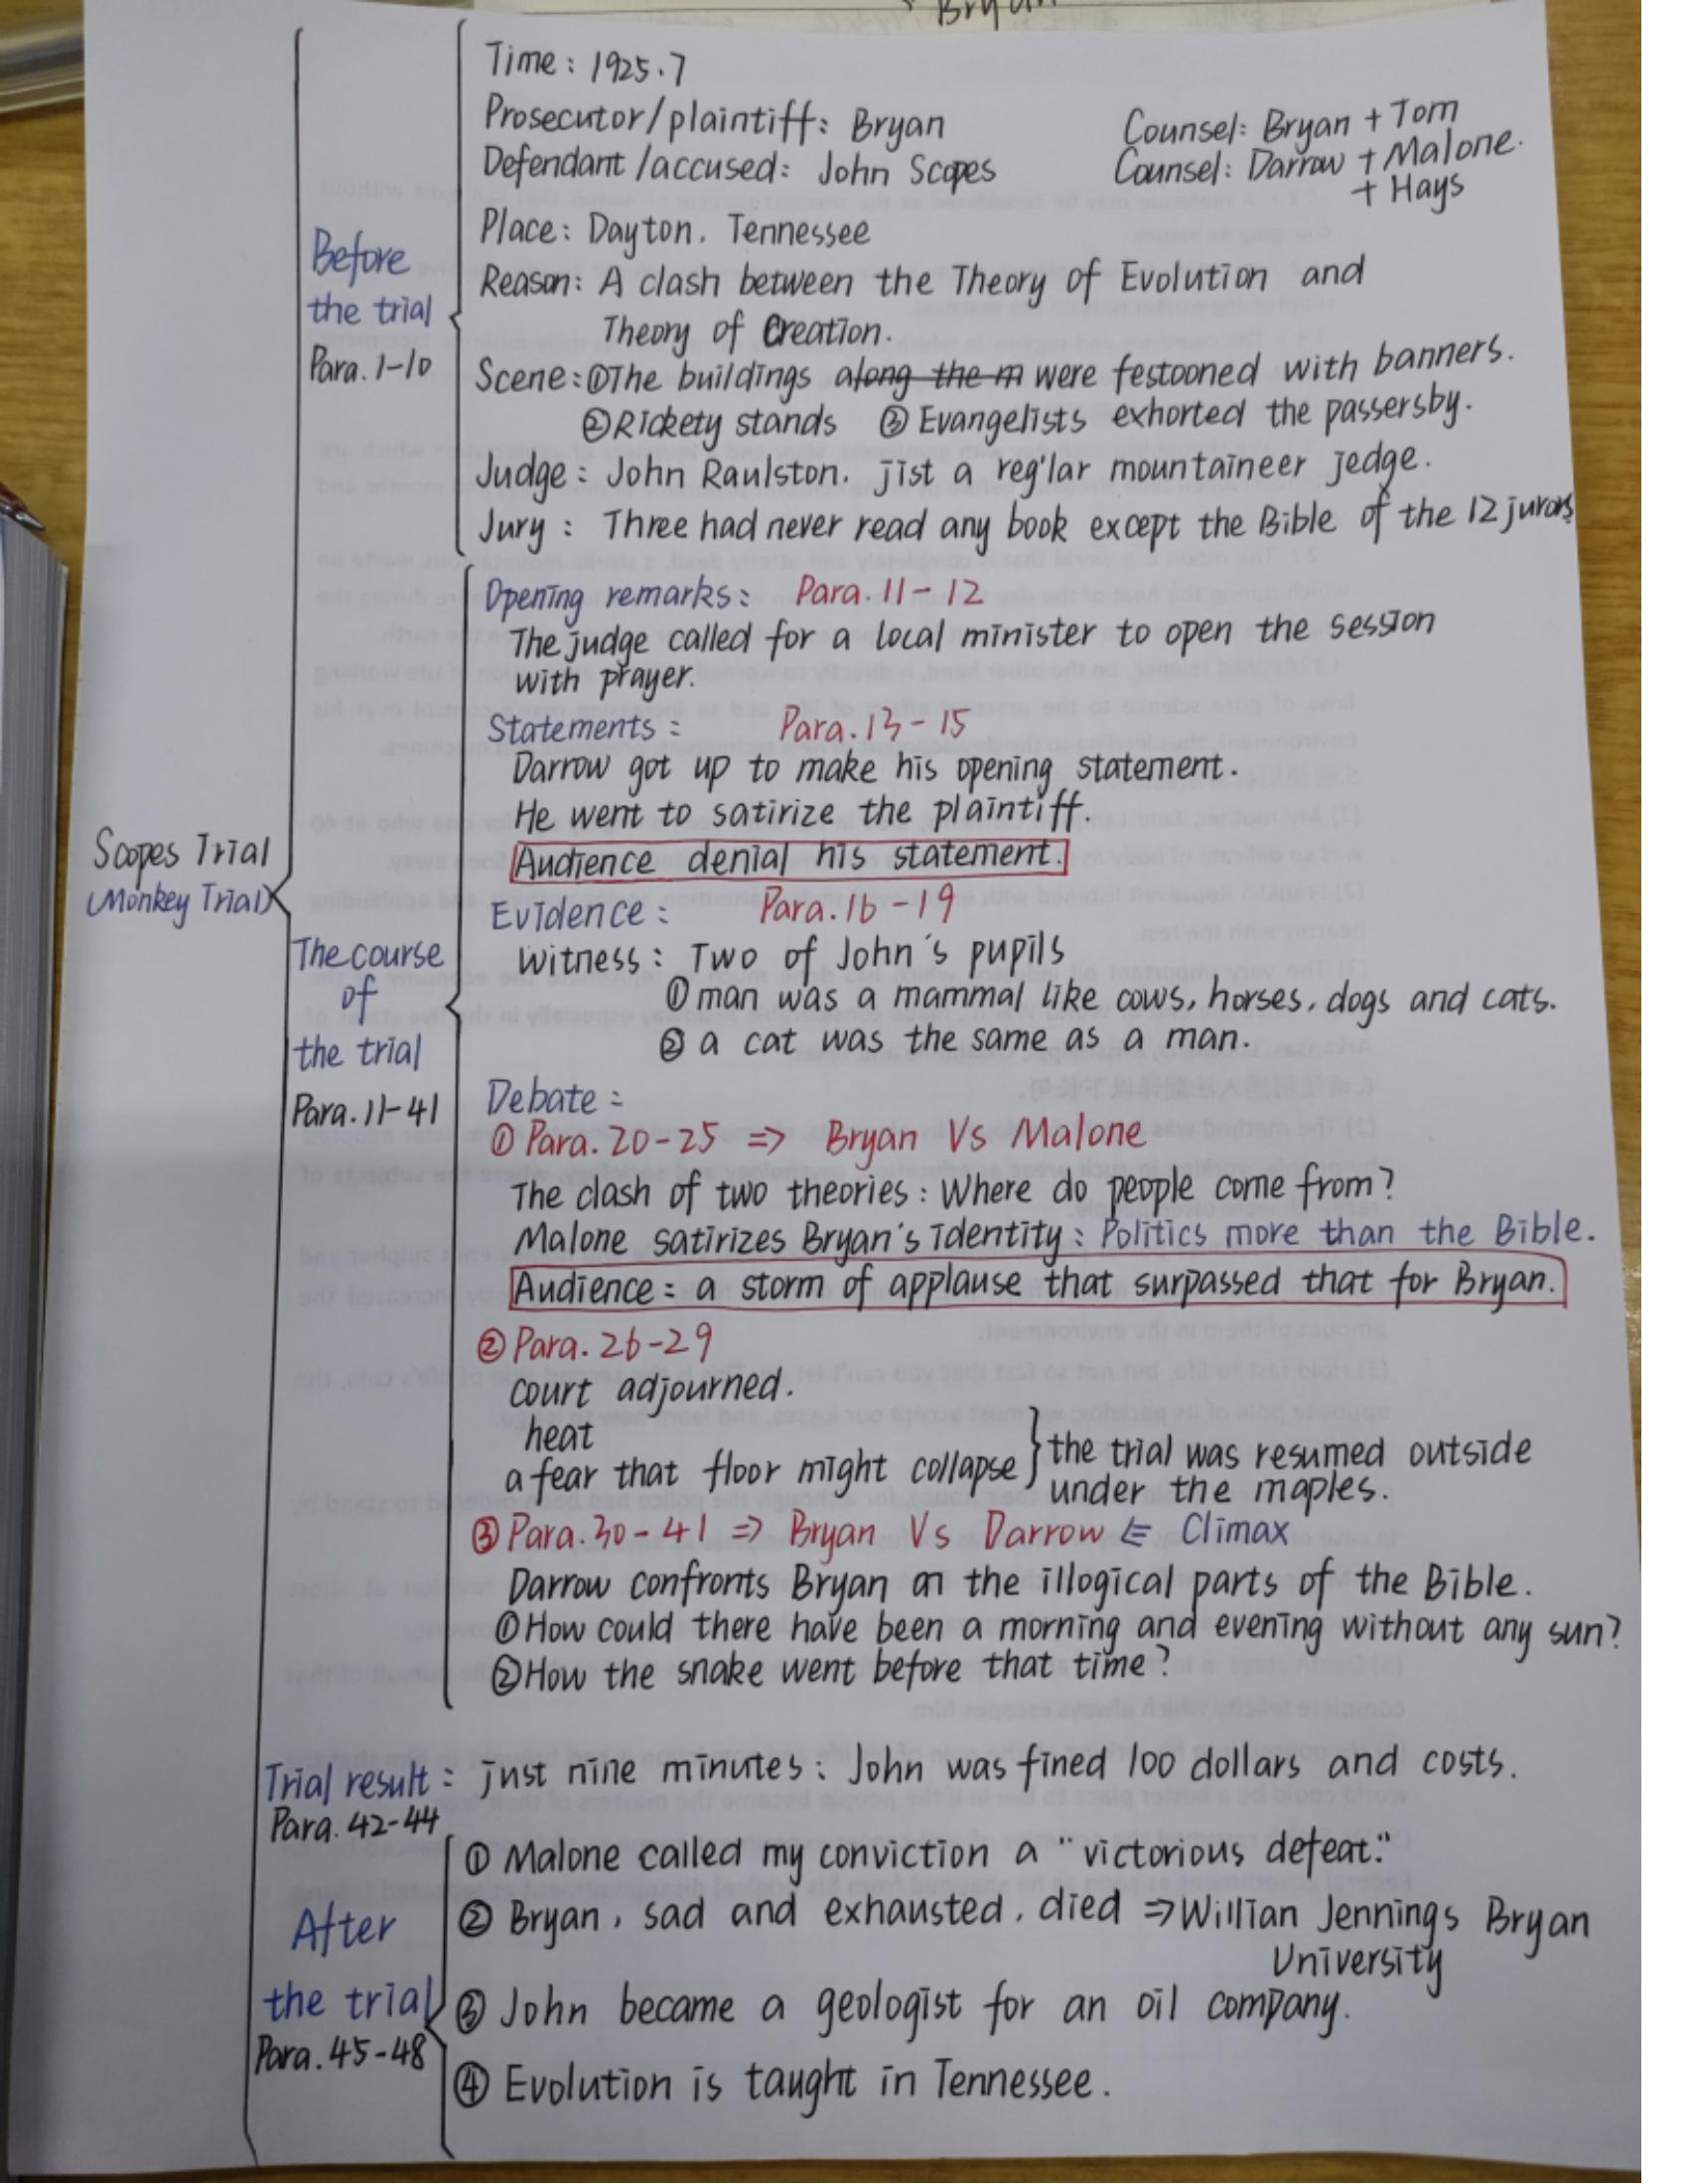 Bryan
Time: 1925.7
Prosecutor/plaintiff: Bryan Counsel: Bryan + Tom
Defendant/accused: John Scopes Counsel: Darrow + Malone.
+ Hays
Place: Dayton. Tennessee
Before
the trial
Para. 1-10
Reason: A clash between the Theory of Evolution and
Theory of Creation.
Scene: ①The buildings along the m were festooned with banners.
②Rickety stands ③Evangelists exhorted the passersby.
Judge: John Raulston. jist a reg'lar mountaineer jedge.
Jury: Three had never read any book except the Bible of the 12 jurors.
Opening remarks: Para. 11-12
The judge called for a local minister to open the session
with prayer.
Statements: Para. 13-15
Darrow got up to make his opening statement.
He went to satirize the plaintiff.
Audience denial his statement.
Scopes Trial
(Monkey Trial)
Evidence: Para. 16-19
The course
of
the trial
Para. 11-41
Witness: Two of John's pupils
① man was a mammal like cows, horses, dogs and cats.
② a cat was the same as a man.
Debate:
① Para. 20-25 => Bryan Vs Malone
The clash of two theories: Where do people come from?
Malone satirizes Bryan's identity: Politics more than the Bible.
Audience: a storm of applause that surpassed that for Bryan.
② Para. 26-29
court adjourned.
heat
a fear that floor might collapse } the trial was resumed outside
under the maples.
③ Para. 30-41 => Bryan Vs Darrow ⇐ Climax
Darrow confronts Bryan on the illogical parts of the Bible.
①How could there have been a morning and evening without any sun?
②How the snake went before that time?
Trial result: just nine minutes: John was fined 100 dollars and costs.
Para. 42-44
After
the trial
Para. 45-48
① Malone called my conviction a "victorious defeat."
② Bryan, sad and exhausted, died => Willian Jennings Bryan
University
③ John became a geologist for an oil company.
④ Evolution is taught in Tennessee.